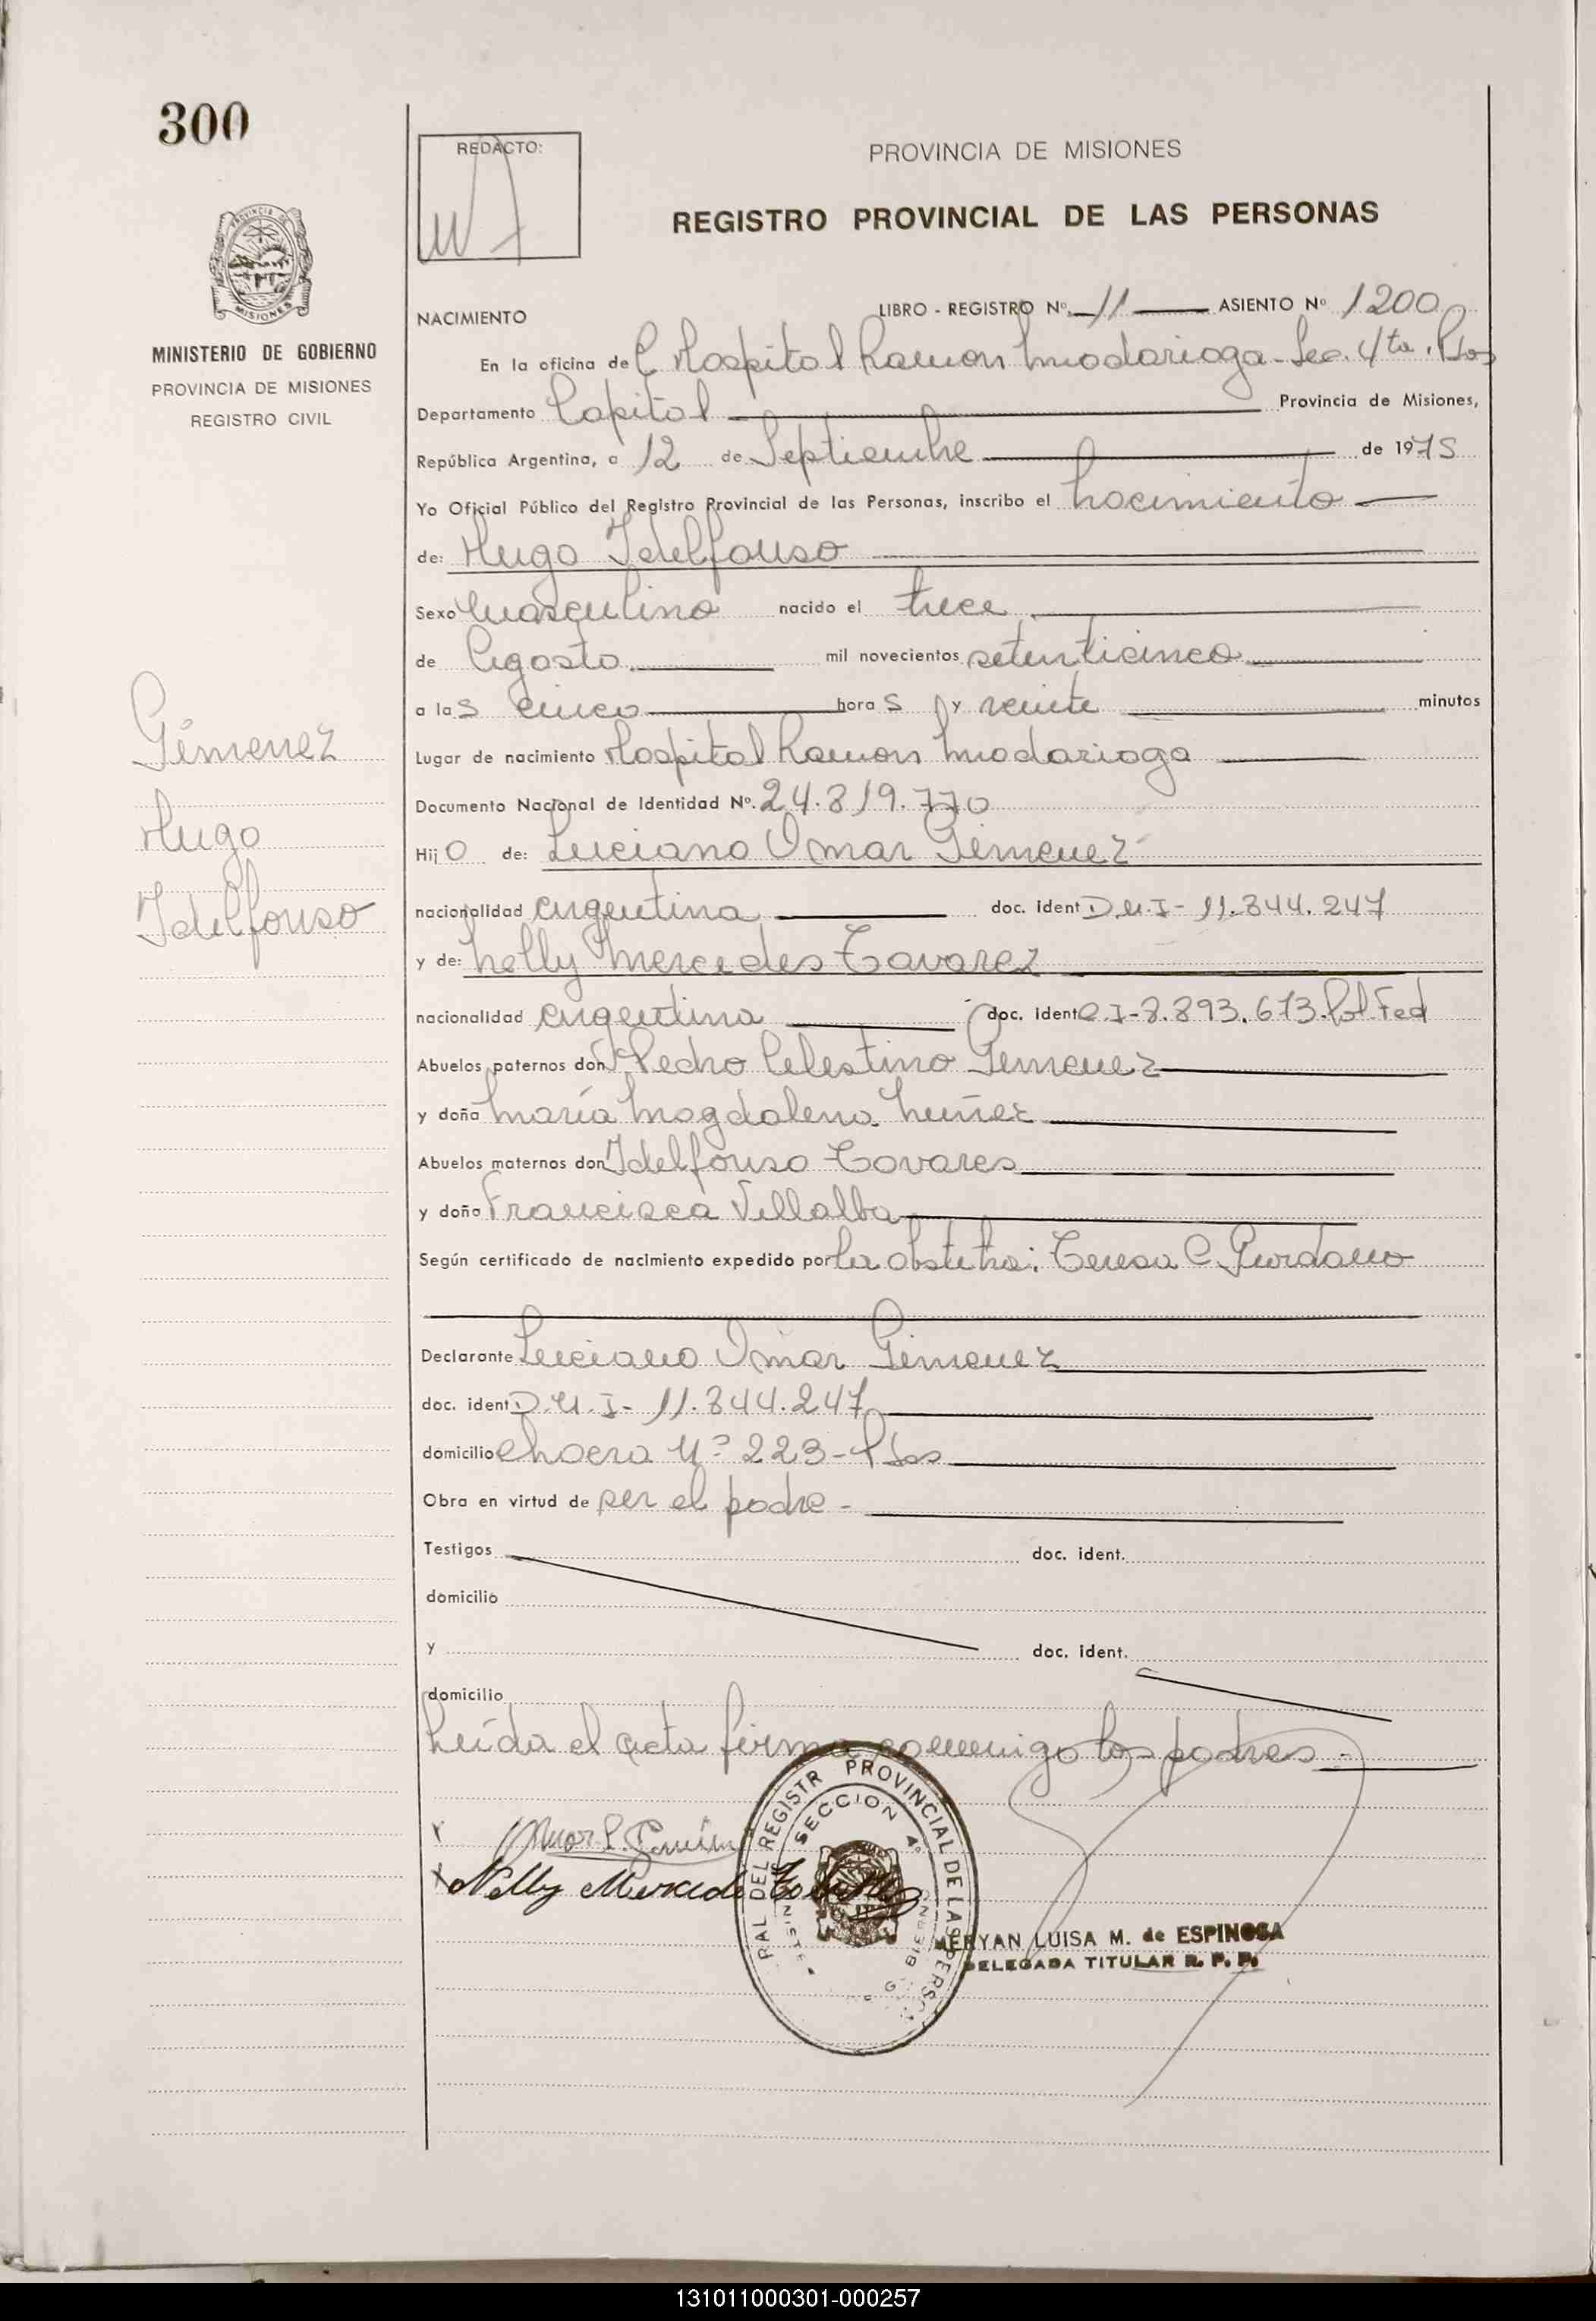 300
REDACTO:
PROVINCIA DE MISIONES
REGISTRO PROVINCIAL DE LAS PERSONAS
MISIONES
MINISTERIO DE GOBIERNO
PROVINCIA DE MISIONES
REGISTRO CIVIL
NACIMIENTO LIBRO - REGISTRO Nº 11 ASIENTO Nº 1200
En la oficina de Hospital Ramon Madariaga - Sec. 4ta. Pdas
Departamento Capital Provincia de Misiones,
República Argentina, a 12 de Septiembre de 1975
Yo Oficial Público del Registro Provincial de las Personas, inscribo el nacimiento
de: Hugo Idelfonso
Sexo masculino nacido el trece
de Agosto mil novecientos setenticinco
a las cinco horas y veinte minutos
Lugar de nacimiento Hospital Ramon Madariaga
Documento Nacional de Identidad Nº. 24.819.770
Hijo de: Luciano Omar Gimenez
nacionalidad argentina doc. ident D.N.I- 11.844.247
y de: Nelly Mercedes Tavarez
nacionalidad argentina doc. ident C.I-8.893.673.Pol.Fed
Abuelos paternos don Pedro Celestino Gimenez
y doña María Magdalena Nuñez
Abuelos maternos don Idelfonso Tavares
y doña Francisca Villalba
Según certificado de nacimiento expedido por la obstetra: Teresa C. Giordano
Declarante Luciano Omar Gimenez
doc. ident D.N.I- 11.844.247
domicilio chacra Nº 223- Pdas
Obra en virtud de ser el padre -
Testigos doc. ident.
domicilio
y doc. ident.
domicilio
Leída el acta firma conmigo los padres.-
Gimenez
Hugo
Idelfonso
Nelly Mercede
REGISTR PROVINCIAL DE LAS PERSO
SECCION 4º
MERYAN LUISA M. de ESPINOSA
DELEGADA TITULAR R. P. P.
131011000301-000257